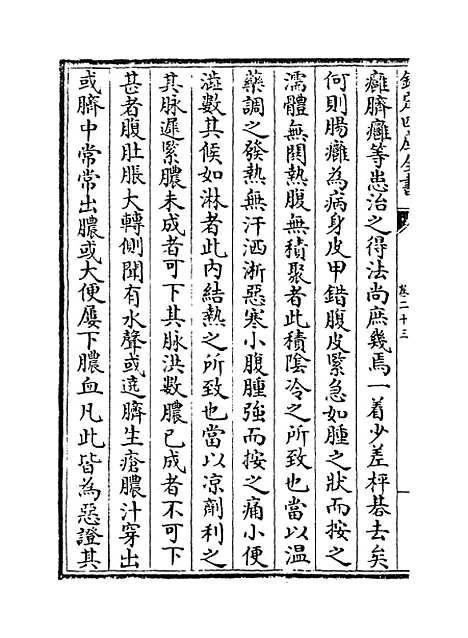 欽定四庫全書
卷二十三
癰臍癰等患治之得法尚庶幾焉一着少差枰碁去矣
何則腸癰為病身皮甲錯腹皮緊急如腫之狀而按之
濡體無閟熱腹無積聚者此積隂冷之所致也當以温
藥調之發熱無汗洒淅惡寒小腹腫强而按之痛小便
澁數其候如淋者此内結熱之所致也當以凉劑利之
其脉遲緊膿未成者可下其脉洪數膿已成者不可下
甚者腹肚脹大轉側聞有水聲或遶臍生瘡膿汁穿出
或臍中常常出膿或大便屢下膿血凡此皆為惡證其